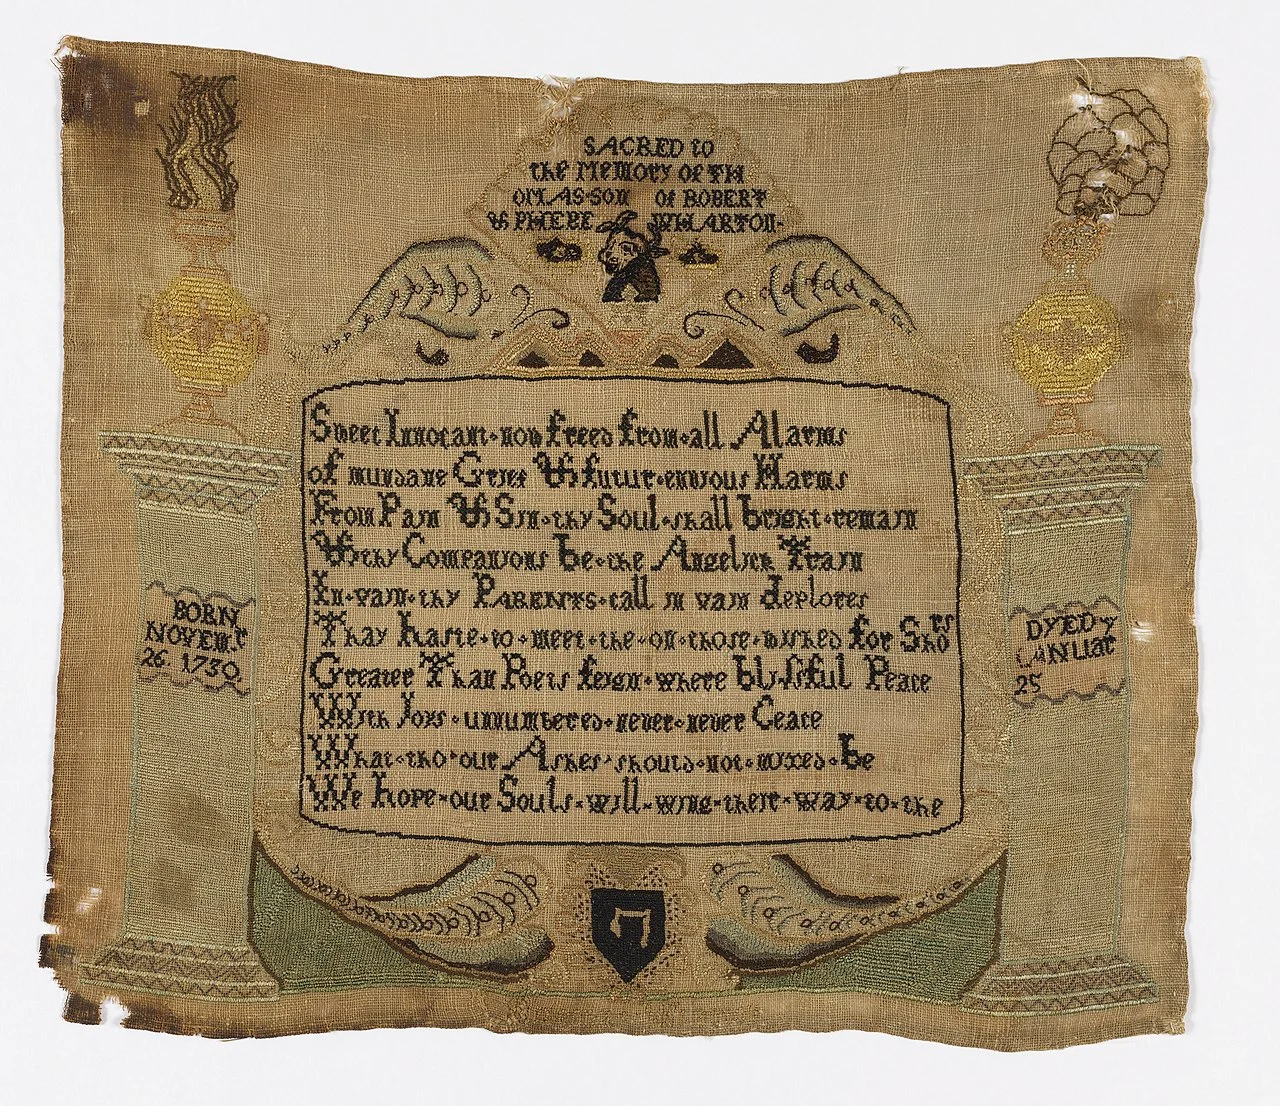 SACRED to
the MeMORY OF TH
OMAS SON OF ROBERT
& PHEBE WHARTON
Sweet Innocant now freed from all Alarms
of mundane Grief & futur envious Harms
From Pain & Sin thy Soul shall bright remain
& thy Companions be the Angelick Train
In vain thy PARENTS call in vain deplores
Thay haste to meet the on those wished for Shores
Greater Than Poets feign where blissful Peace
With Joys unnumbered never never Ceace
What tho our Ashes should not mixed be
We hope our Souls will wing their way to the
BORN
NOVEMr
26. 1730.
DYED
JANUAR
25